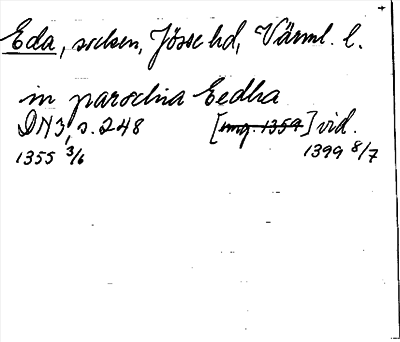 Eda, socken, Jösse hd, Värml. l.
in parochia Eedha
DN 3, s. 248 [omg. 1359] vid.
1355 3/6 1399 8/7